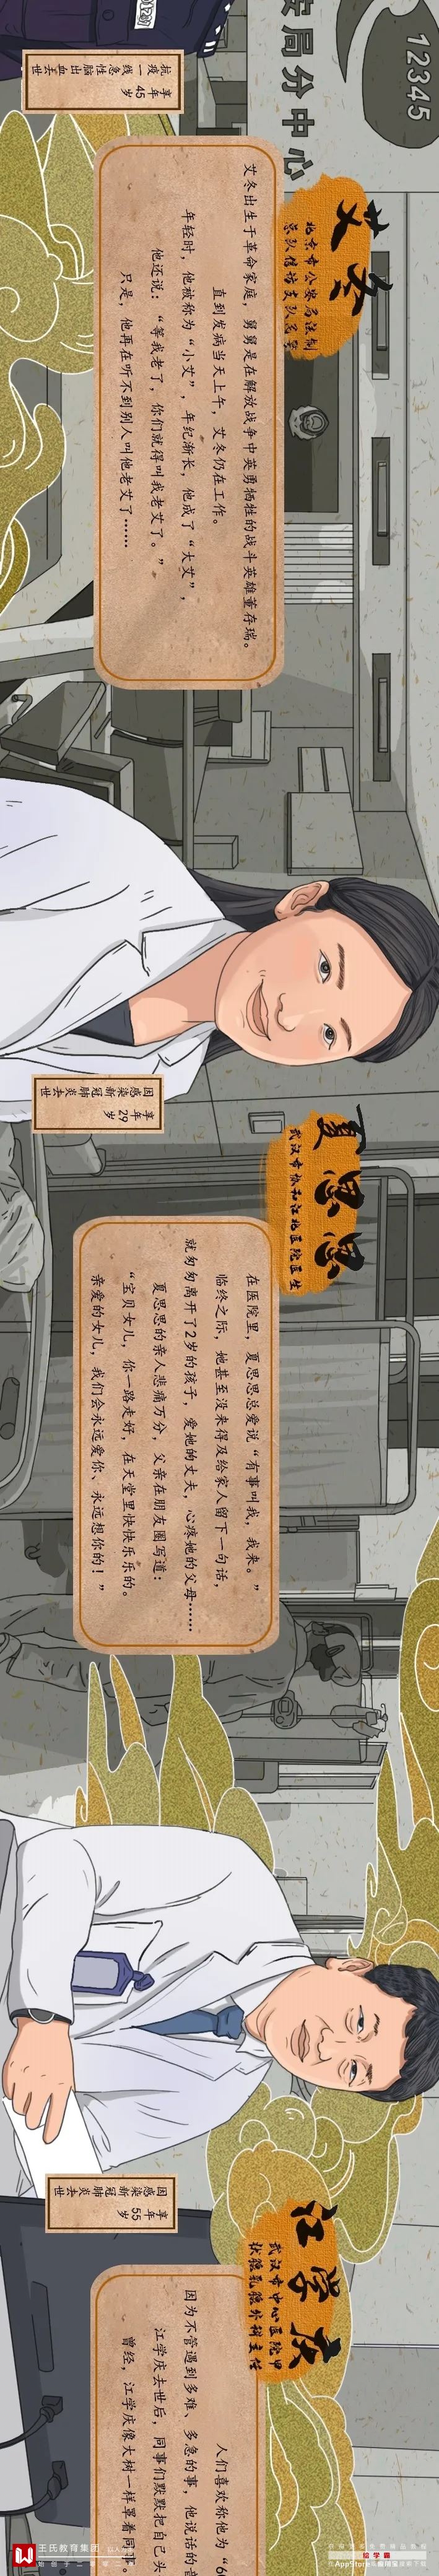 12345
安局分中心
艾冬
北京市公安局法制
总队信访支队民警
享年45岁
抗疫一线急性脑出血去世
艾冬出生于革命家庭，舅舅是在解放战争中英勇牺牲的战斗英雄董存瑞。
直到发病当天上午，艾冬仍在工作。
年轻时，他被称为“小艾”，年纪渐长，他成了“大艾”，
他还说：“等我老了，你们就得叫我老艾了。”
只是，他再在听不到别人叫他老艾了……
夏思思
武汉市协和江北医院医生
享年29岁
因感染新冠肺炎去世
在医院里，夏思思总爱说“有事叫我，我来。”
临终之际，她甚至没来得及给家人留下一句话，
就匆匆离开了2岁的孩子，爱她的丈夫，心疼她的父母……
夏思思的亲人悲痛万分，父亲在朋友圈写道：
“宝贝女儿，你一路走好，在天堂里快快乐乐的。
亲爱的女儿，我们会永远爱你、永远想你的！”
江学庆
武汉市中心医院甲
状腺乳腺外科主任
享年55岁
因感染新冠肺炎去世
人们喜欢称他为“6
因为不管遇到多难、多急的事，他说话的音
江学庆去世后，同事们默默把自己头
曾经，江学庆像大树一样罩着同事。
王氏教育集团
绘学霸